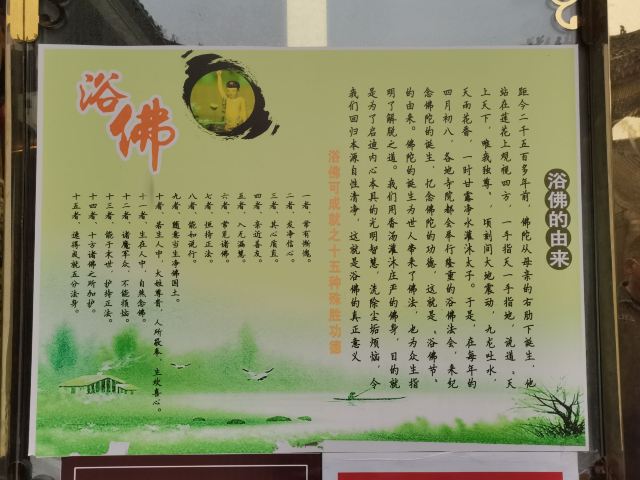 浴佛
浴佛的由来
距今二千五百多年前，佛陀从母亲的右肋下诞生，他
站在莲花上观视四方，一手指天一手指地，说道：“天
上天下，唯我独尊”，顷刻间大地震动，九龙吐水，
天雨花香，一时甘露净水灌沐太子。于是，在每年的
四月初八，各地寺院都会奉行隆重的浴佛法会，来纪
念佛陀的诞生，忆念佛陀的功德，这就是、浴佛节、
的由来。佛陀的诞生为世人带来了佛法，也为众生指
明了解脱之道。我们用香汤灌沐庄严的佛身，目的就
是为了启迪内心本具的光明智慧，洗除尘垢烦恼，令
我们回归本源自性清净，这就是浴佛的真正意义
浴佛可成就之十五种殊胜功德
一者、常有惭愧。
二者、发净信心。
三者、其心质直。
四者、亲近善友。
五者、入无漏慧。
六者、常见诸佛。
七者、恒持正法。
八者、能如说行。
九者、随意当生净佛国土。
十者、若生人中，大姓尊贵，人所敬奉，生欢喜心。
十一者、生在人中，自然念佛。
十二者、诸魔军众，不能损恼。
十三者、能于末世，护持正法。
十四者、十方诸佛之所加护。
十五者、速得成就五分法身。